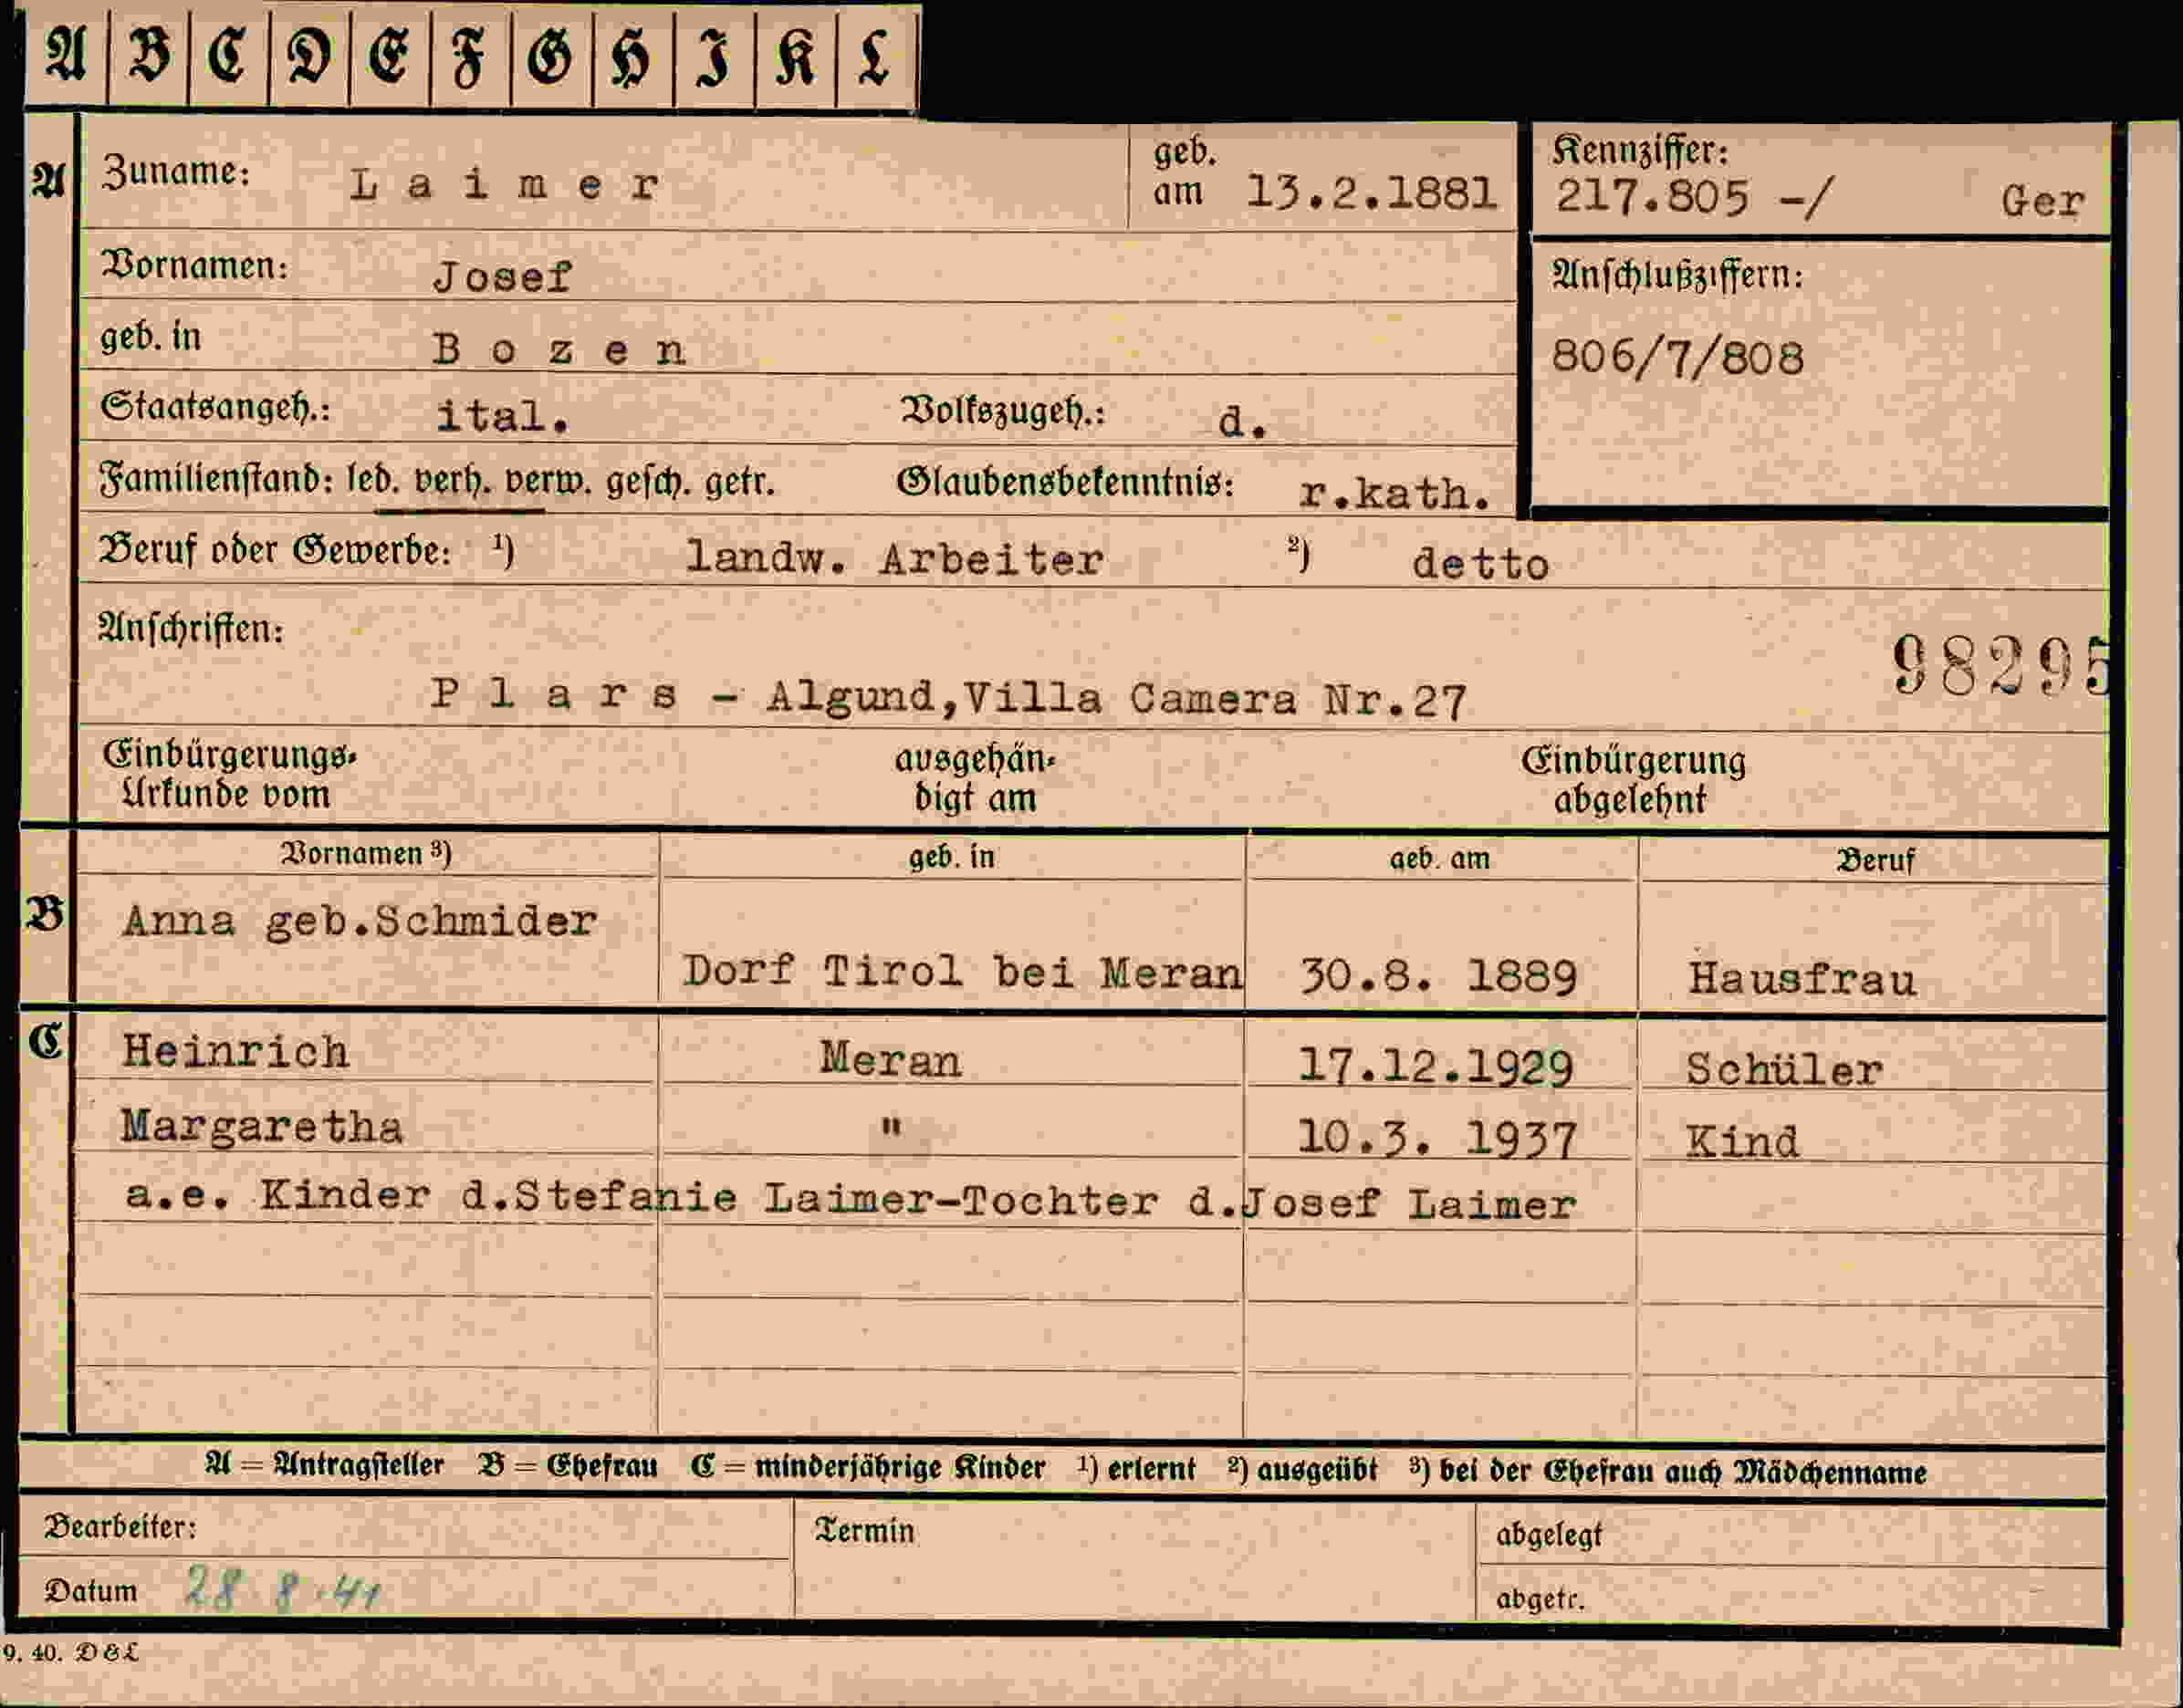 A B C D E F G H I K L
A Zuname: Laimer geb. am 13.2.1881 Kennziffer: 217.805 -/ Ger
Vornamen: Josef Anschlußziffern:
geb. in Bozen 806/7/808
Staatsangeh.: ital. Volkszugeh.: d.
Familienstand: led. verh. verw. gesch. getr. Glaubensbekenntnis: r.kath.
Beruf oder Gewerbe: ¹) landw. Arbeiter ²) detto
Anschriften: 98295
Plars - Algund,Villa Camera Nr.27
Einbürgerungs- ausgehän- Einbürgerung
Urkunde vom digt am abgelehnt
Vornamen ³) geb. in geb. am Beruf
B Anna geb.Schmider
Dorf Tirol bei Meran 30.8. 1889 Hausfrau
C Heinrich Meran 17.12.1929 Schüler
Margaretha " 10.3. 1937 Kind
a.e. Kinder d.Stefanie Laimer-Tochter d.Josef Laimer
A = Antragsteller B = Ehefrau C = minderjährige Kinder ¹) erlernt ²) ausgeübt ³) bei der Ehefrau auch Mädchenname
Bearbeiter: Termin abgelegt
Datum 28.8.41 abgetr.
9. 40. D&L